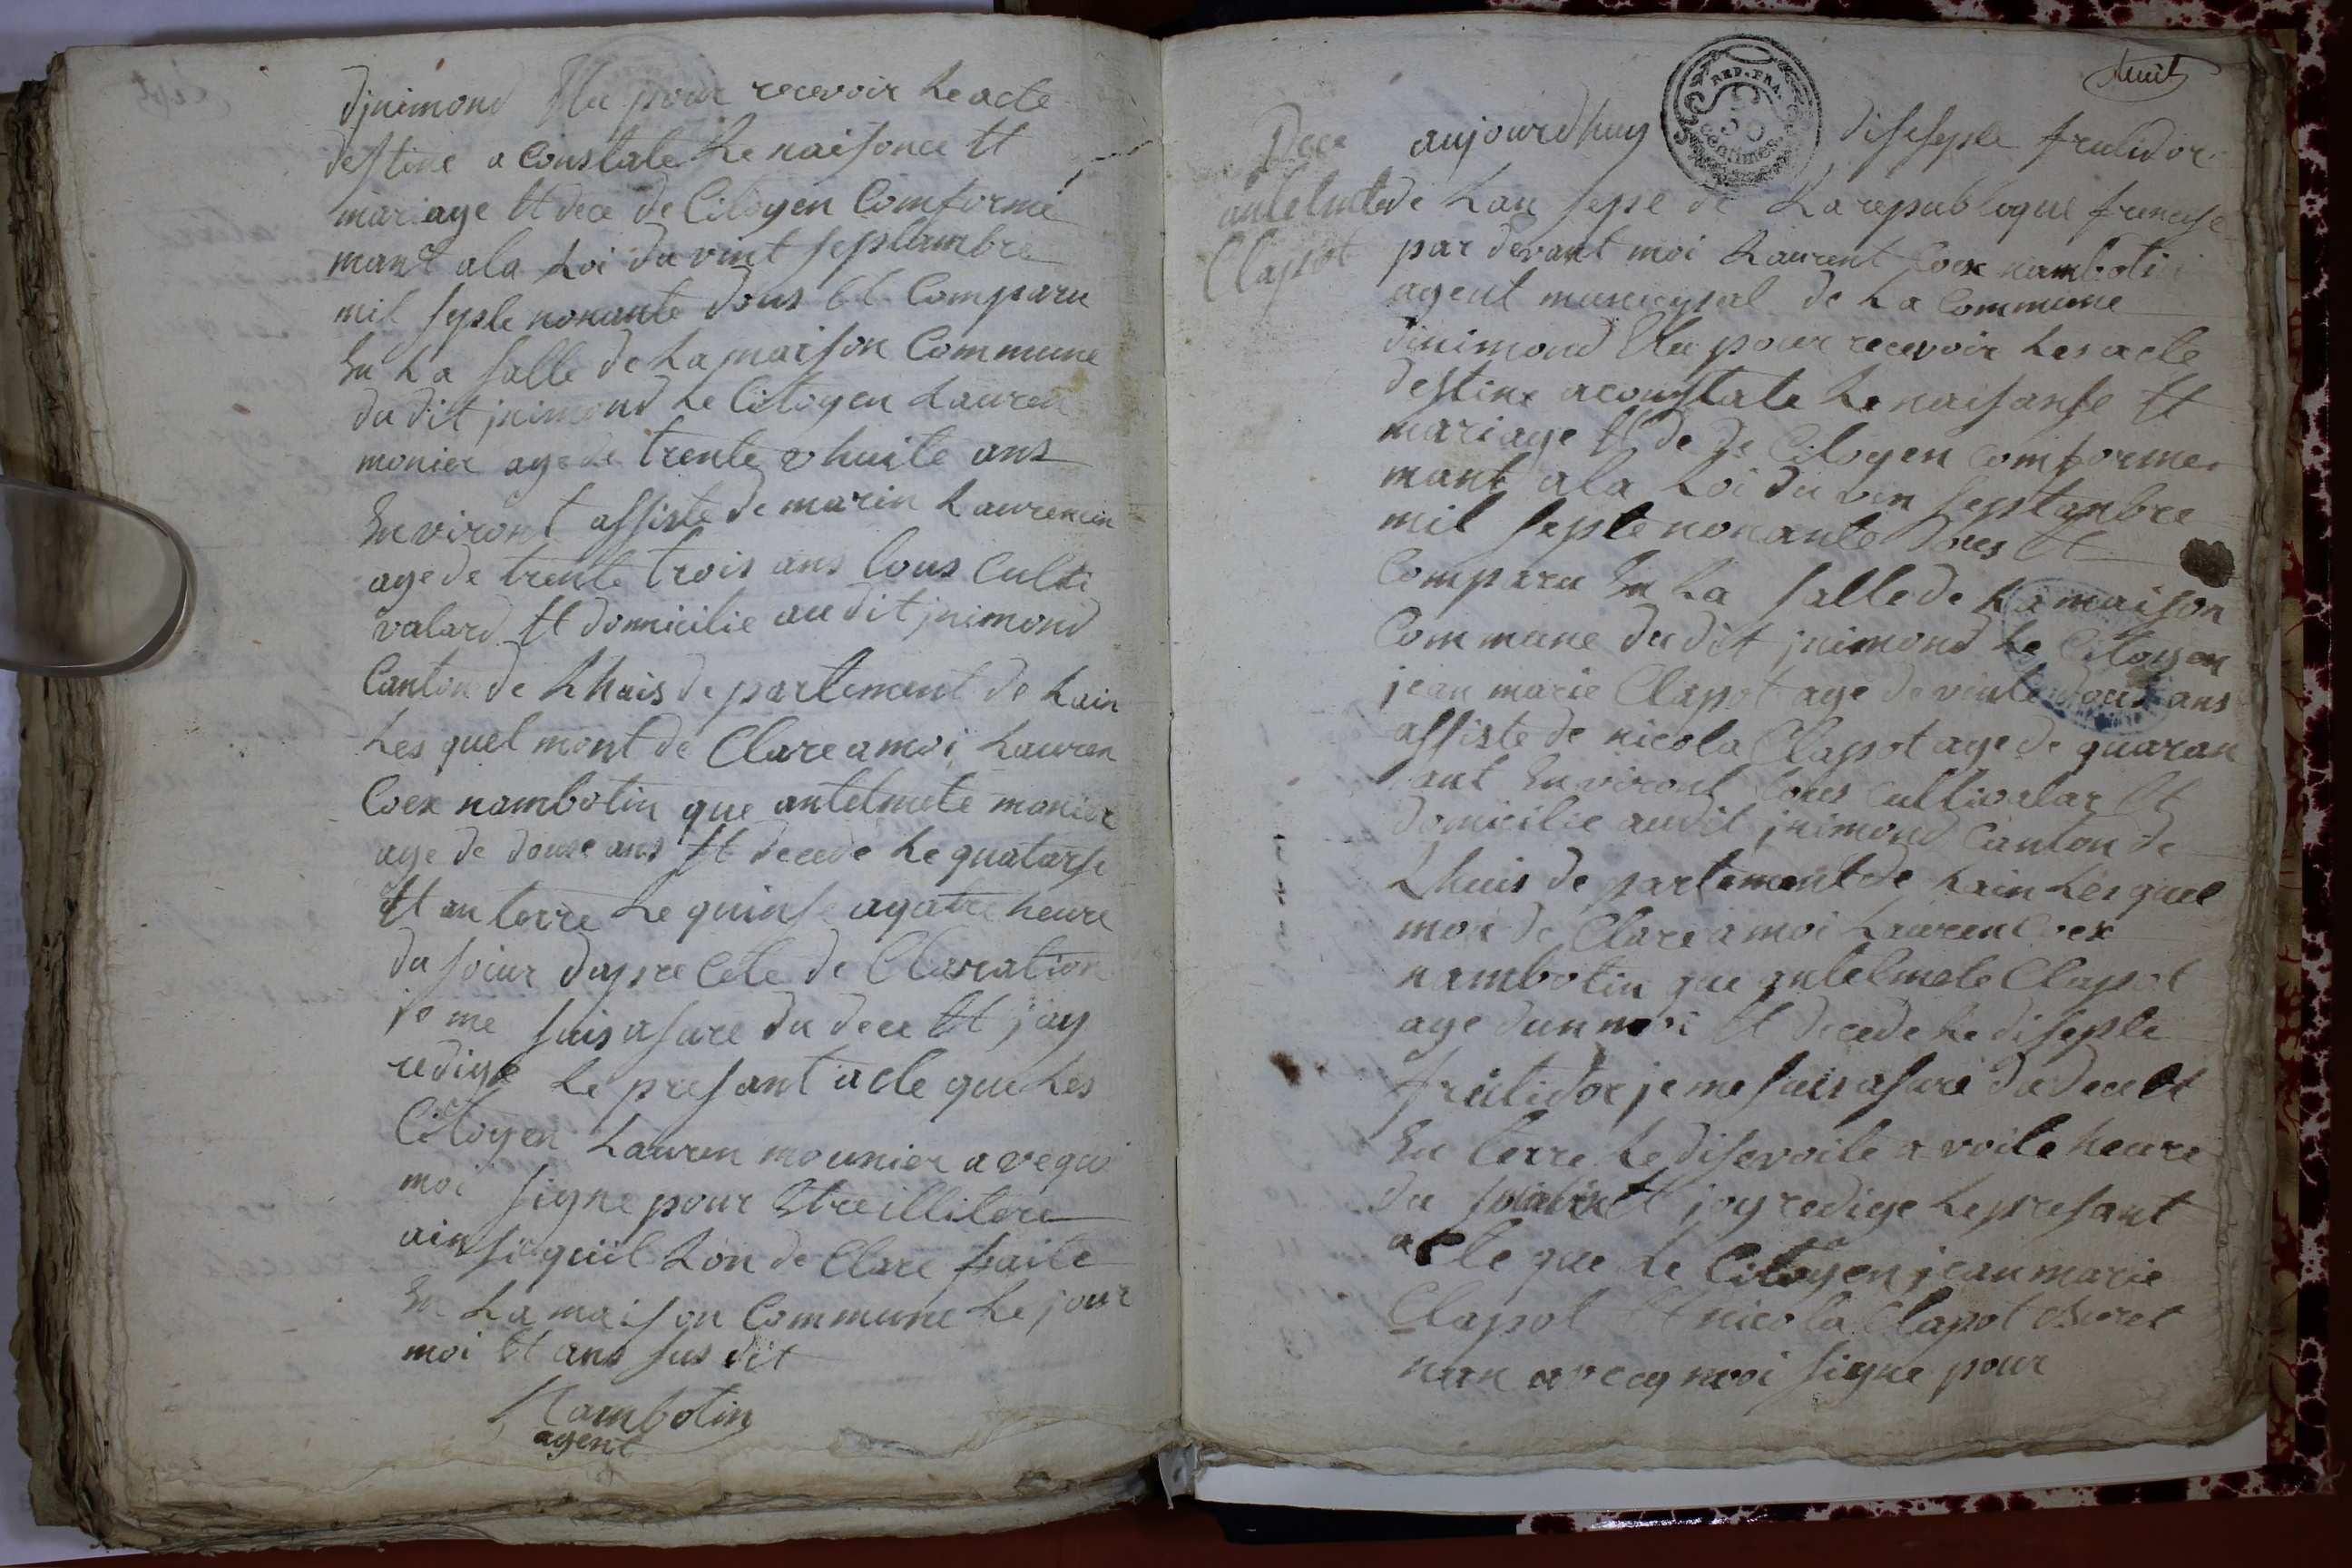 djnimond Elu pour recevoir Le acte
destine a Constate Le naisance Et
mariage Et dece de Citoyen Comformé
mant ala Loi du vint septambre
mil septe nonante dous Et Comparu
En La salle de La maison Commune
du dit jnimond Le Citoyen Lauren
monier age de trente e huite ans
Environt assiste de marin Laurencin
age de trente trois ans tous Culti
vatard Et domicilie au dit jnimond
Canton de Lhuis de partement de Lain
Les quel mont de Clare a moi Lauren
Coex nambotin que antelmete monier
age de douse ans Et decede Le quatarse
Et an terre Le quinse a gatre heure
du soiur dapre Cete de Claration
je me suis asure du dece Et jay
redige Le presant acte que Les
Citoyen Lauren mounier a veque
moi signe pour Etre illitere
ainsi quil Lon de Clare faite
En La maison Commune Le jour
moi Et ans sus dit
Nambotin
agent
huit
REP. FRA.
50
centimes
Dece
antelmete
Clapot
aujourdhuy disesepte frutidor
de Lan sepe de La republoque francse
par devant moi Laurent Coex nambotin
agent municypal de La Commune
dinimond Elu pour recevoir Les acte
destine a constate Le naisanse Et
mariage Et de de Citoyen Comforme
mant ala Loi du vin septanbre
mil septe nonante doues Et
Comparu En La salle de La maison
Commune du dit jnimond Le Citoyen
jean marie Clapot age de vinte dous ans
assiste de nicola Clapot age de quaran
ant Environt toues cultivatar Et
domicilie audit jnimond Canton de
Lhuis de partement de Lain Les quel
mon de Clare a moi Lauren Coex
nambotin que antelmete Clapot
age dun moi Et decede Le disepte
frutidor je me suis asuré du dece Et
En terre Le disevoite a voite heure
du matin Et jay redige Le presant
acte que Le Citoyen jean marie
Clapot Et nicola Clapot
nan avecq moi signe pour